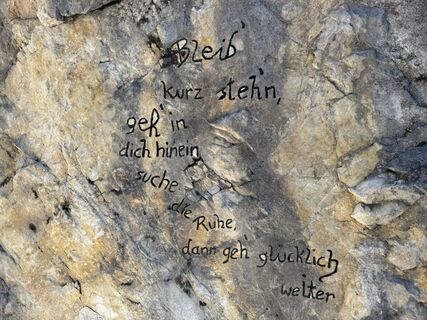 Bleib'
kurz steh'n,
geh' in
dich hinein
suche
die Ruhe,
dann geh' glücklich
weiter